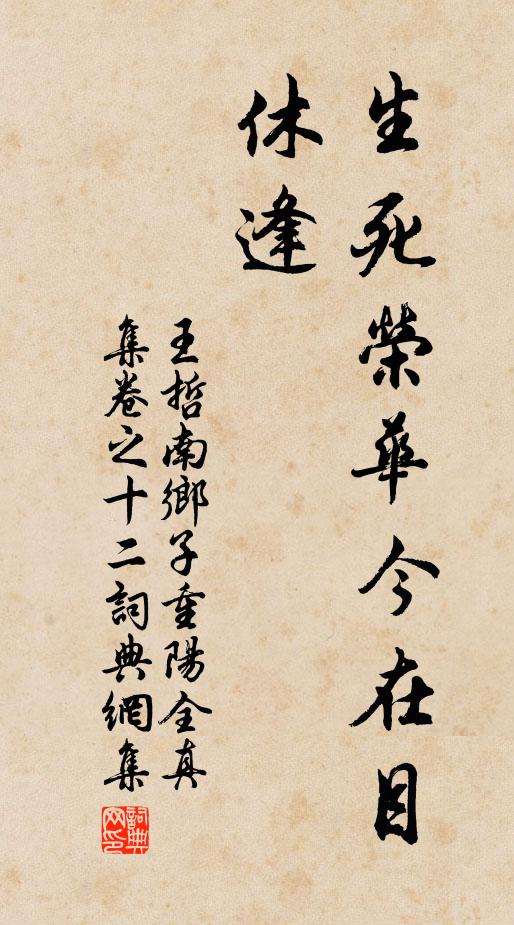 生死榮華今在目
休逢
王哲南鄉子重陽全真
集卷之十二詞典網集
詞典网印